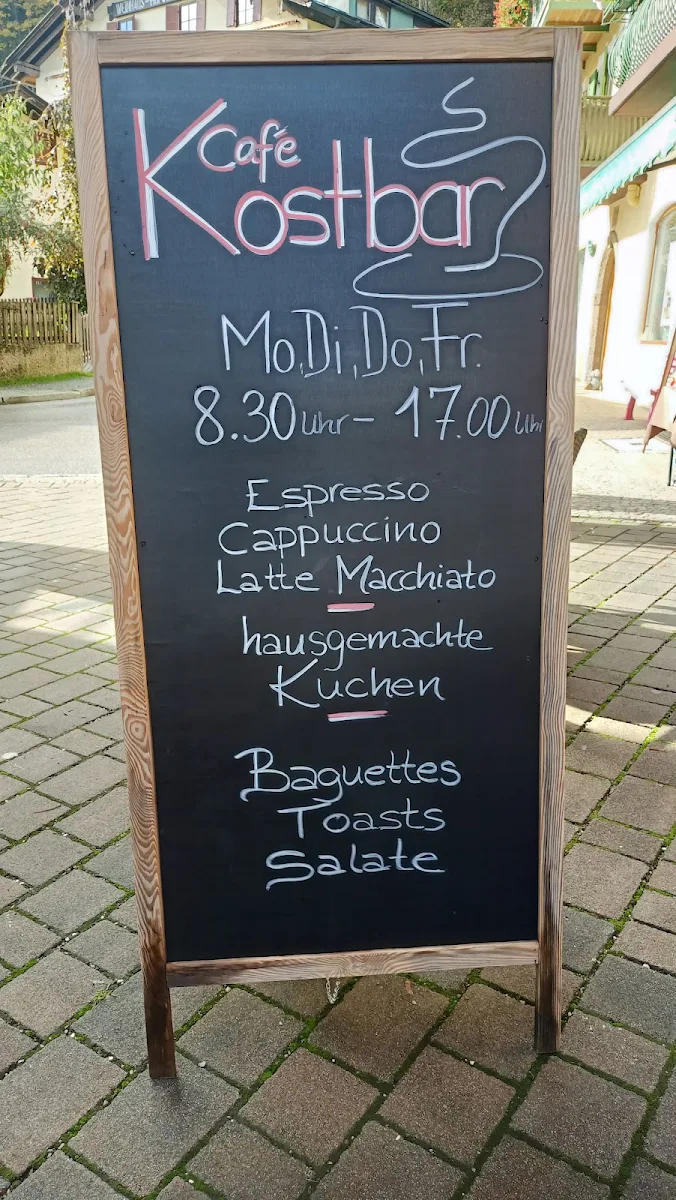 Café
Kostbar
Mo,Di,Do,Fr.
8.30 Uhr – 17.00 Uhr
Espresso
Cappuccino
Latte Macchiato
hausgemachte
Kuchen
Baguettes
Toasts
Salate